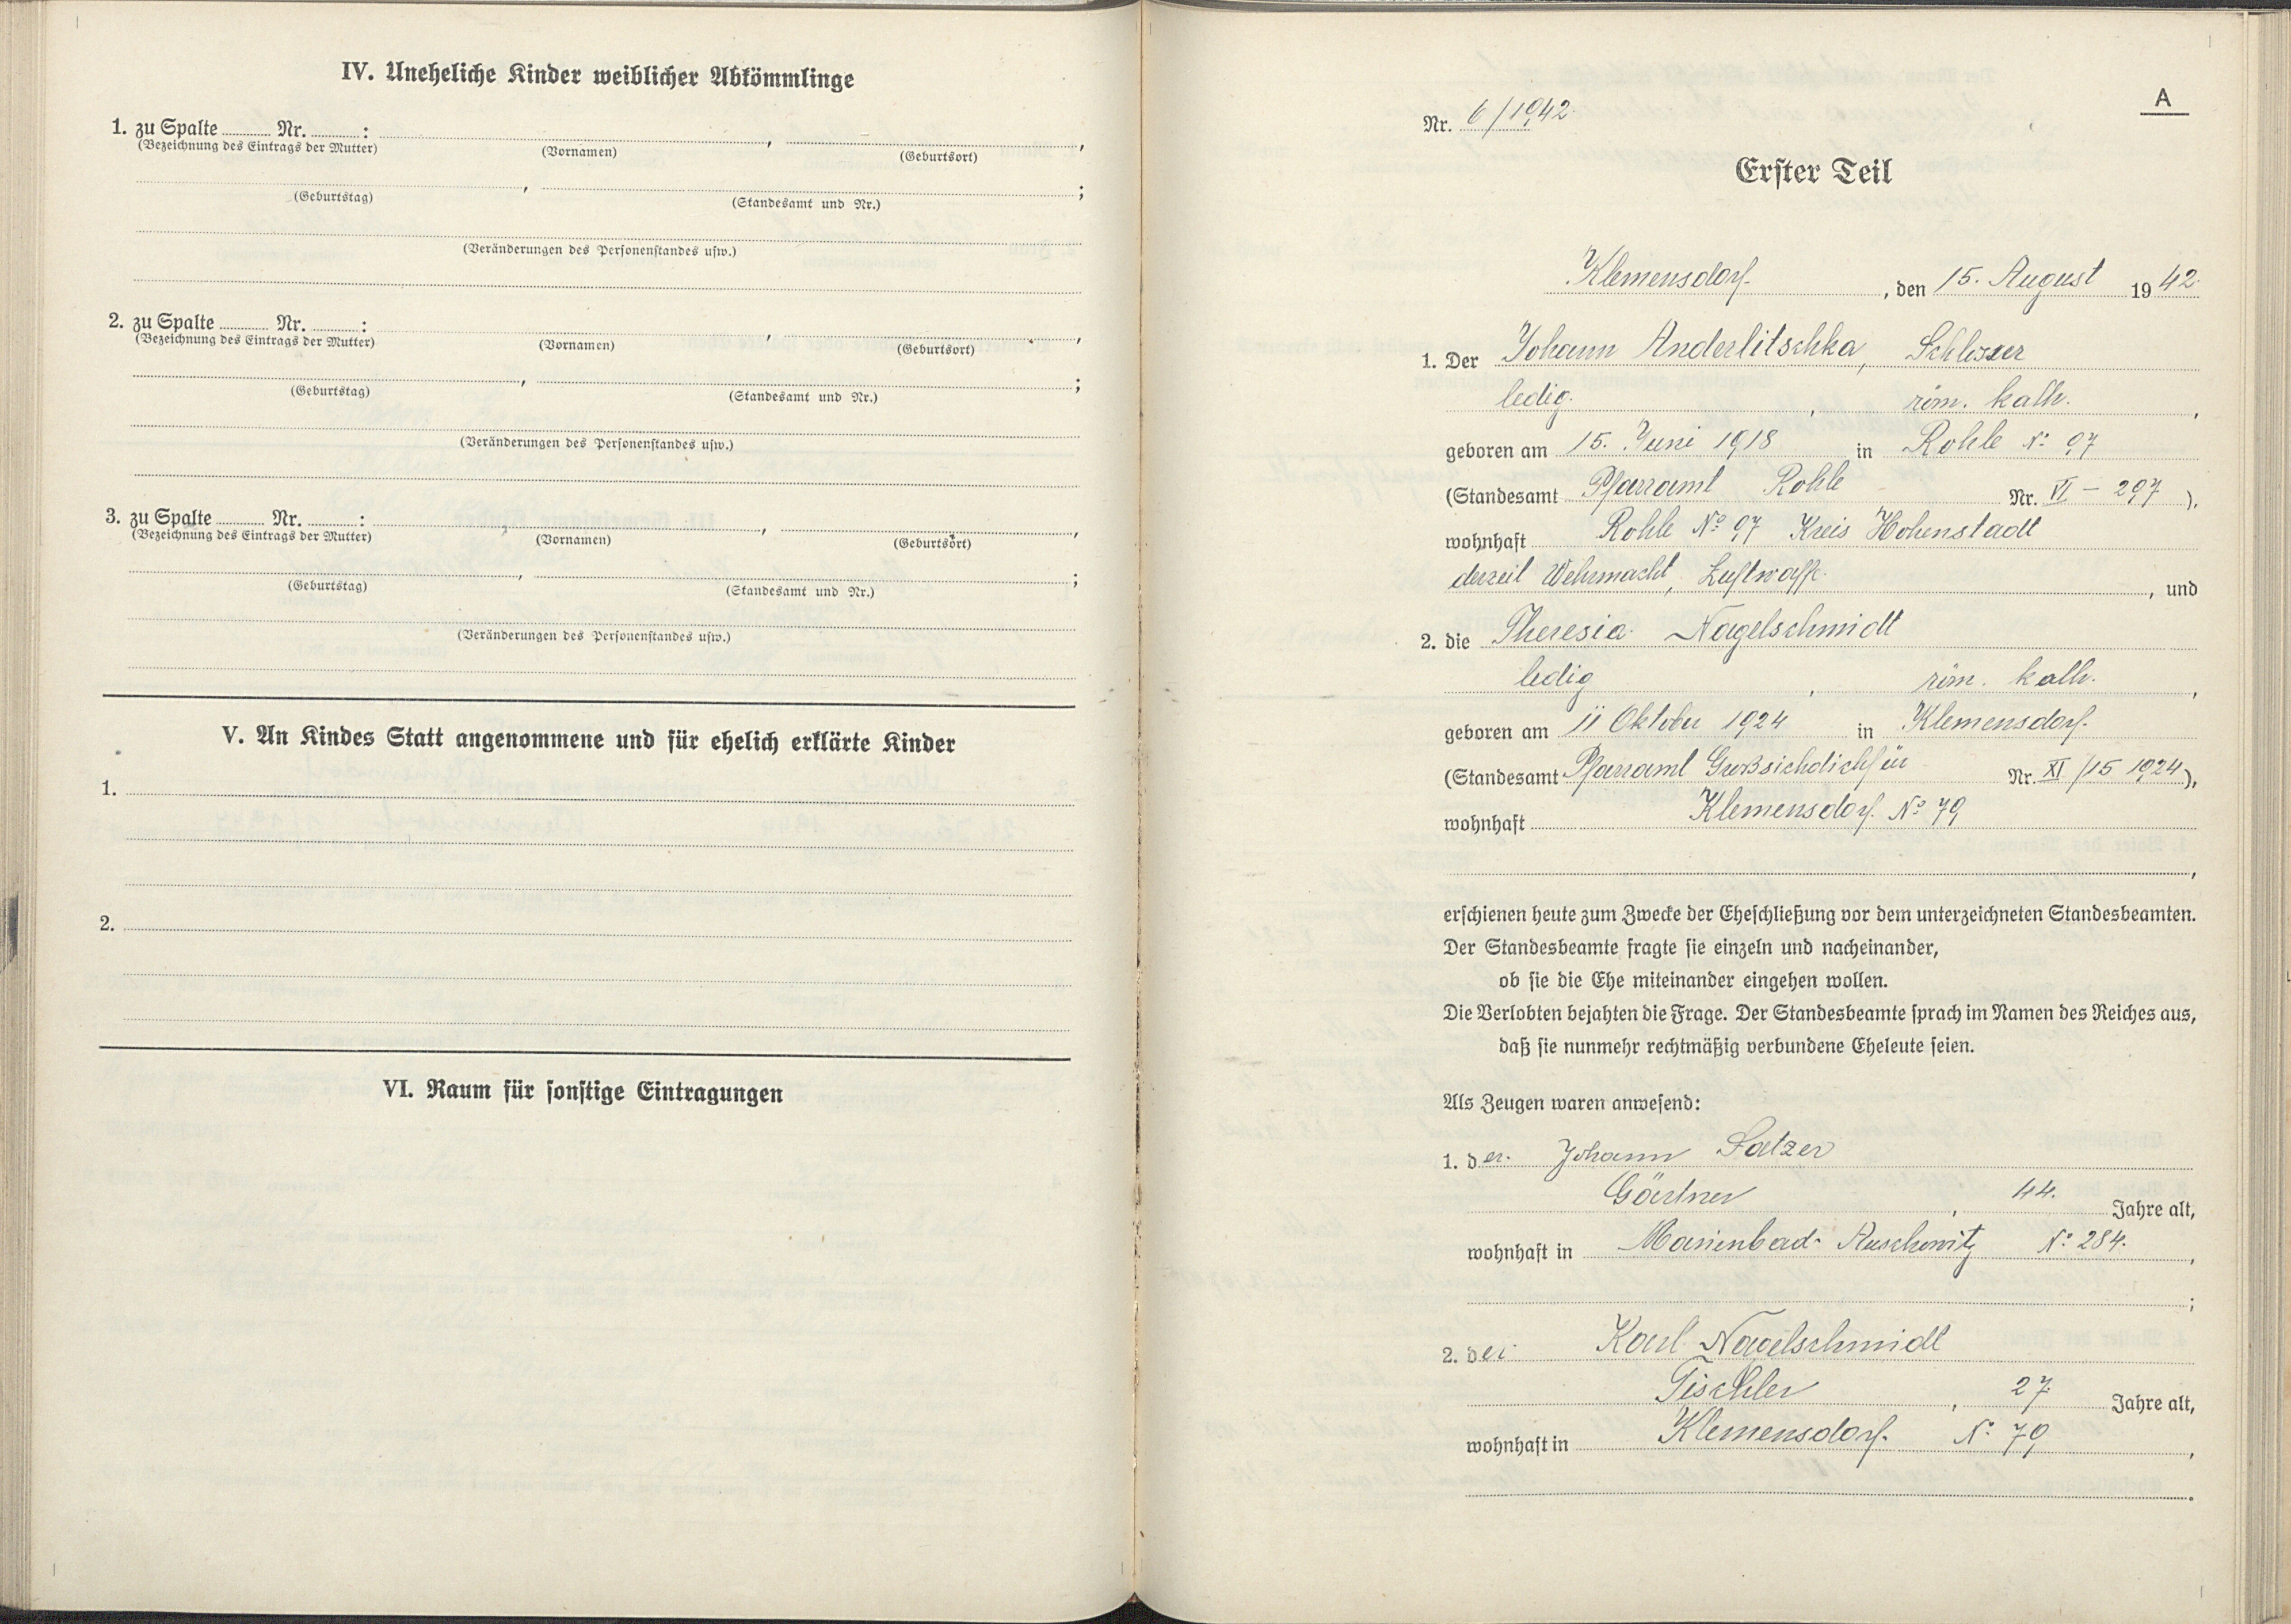 IV. Uneheliche Kinder weiblicher Abkömmlinge
1. zu Spalte ........ Nr. ........ :
(Bezeichnung des Eintrags der Mutter) (Vornamen) , (Geburtsort) ,
(Geburtstag) , (Standesamt und Nr.) ;
(Veränderungen des Personenstandes usw.)
2. zu Spalte ........ Nr. ........ :
(Bezeichnung des Eintrags der Mutter) (Vornamen) , (Geburtsort) ,
(Geburtstag) , (Standesamt und Nr.) ;
(Veränderungen des Personenstandes usw.)
3. zu Spalte ........ Nr. ........ :
(Bezeichnung des Eintrags der Mutter) (Vornamen) , (Geburtsort) ,
(Geburtstag) , (Standesamt und Nr.) ;
(Veränderungen des Personenstandes usw.)
V. An Kindes Statt angenommene und für ehelich erklärte Kinder
1.
2.
VI. Raum für sonstige Eintragungen
A
Nr. 6/1942.
Erster Teil
Klemensdorf, den 15. August 1942.
1. Der Johann Anderlitschka, Schlosser
ledig. , röm. kath. ,
geboren am 15. Juni 1918 in Rohle No 97
(Standesamt Pfarramt Rohle Nr. VI – 297 ),
wohnhaft Rohle No 97 Kreis Hohenstadt
derzeit Wehrmacht, Luftwaffe. , und
2. die Theresia Nagelschmidt
ledig , röm. kath. ,
geboren am 11 Oktober 1924 in Klemensdorf.
(Standesamt Pfarramt Großsichdichfür Nr. XI /15 1924),
wohnhaft Klemensdorf. No 79
,
erschienen heute zum Zwecke der Eheschließung vor dem unterzeichneten Standesbeamten.
Der Standesbeamte fragte sie einzeln und nacheinander,
ob sie die Ehe miteinander eingehen wollen.
Die Verlobten bejahten die Frage. Der Standesbeamte sprach im Namen des Reiches aus,
daß sie nunmehr rechtmäßig verbundene Eheleute seien.
Als Zeugen waren anwesend:
1. der Johann Satzer
Gärtner , 44. Jahre alt,
wohnhaft in Marienbad-Auschowitz No 284. ,
;
2. der Karl Nagelschmidt
Tischler , 27. Jahre alt,
wohnhaft in Klemensdorf. No 79 ,
.